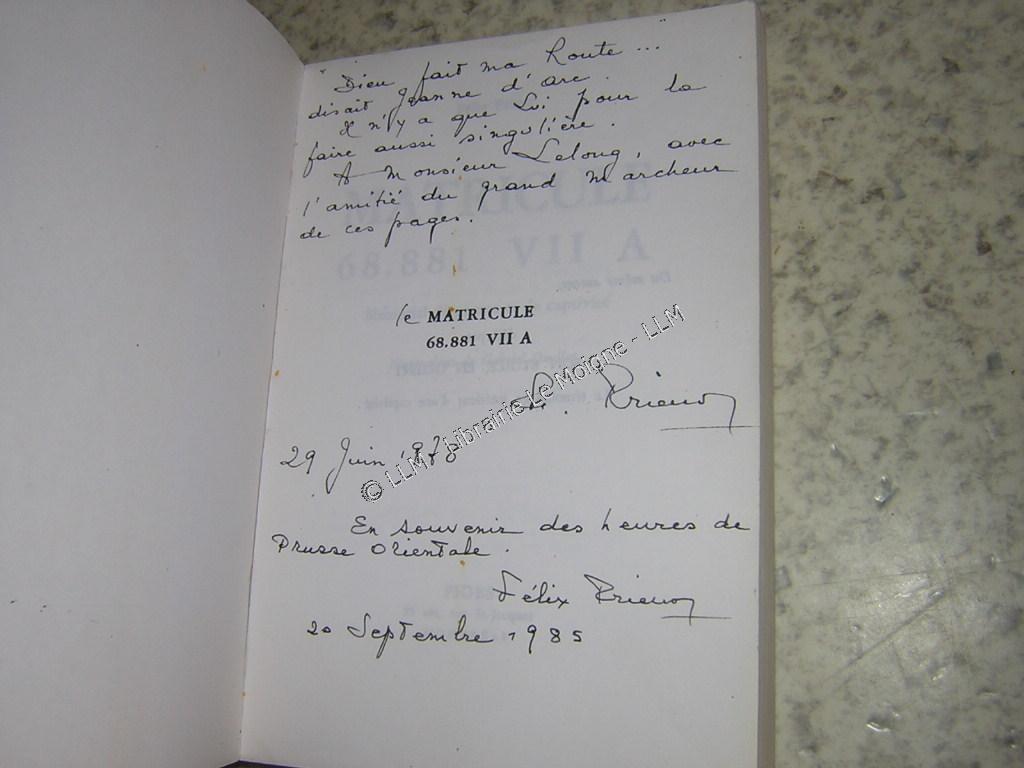 Dieu fait ma Route...
disait Jeanne d'arc.
Il n'y a que Lui pour la
faire aussi singulière.
A Monsieur Lelong, avec
l'amitié du grand marcheur
de ces pages.
MATRICULE
68.881 VII A
le MATRICULE
68.881 VII A
© LLM - Librairie Le Moigne - LLM
29 Juin 1978
En souvenir des heures de
Prusse Orientale.
Félix
20 Septembre 1985